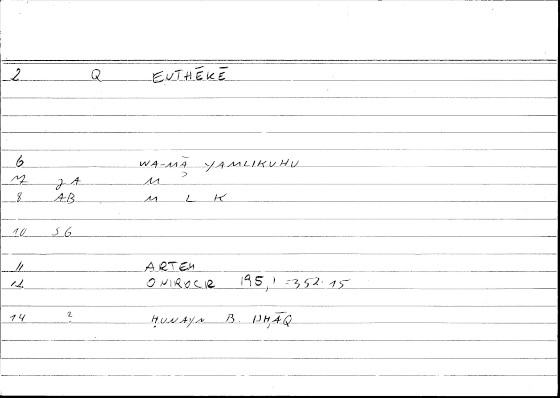 2 Q EUTHĒKĒ
6 WA-MĀ YAMLIKUHU
7 gA M
8 AB M L K
10 SG
11 ARTEM
12 ONIROCR 195,1 = 352.15
14 ? ḤUNAYN B. ISḤĀQ